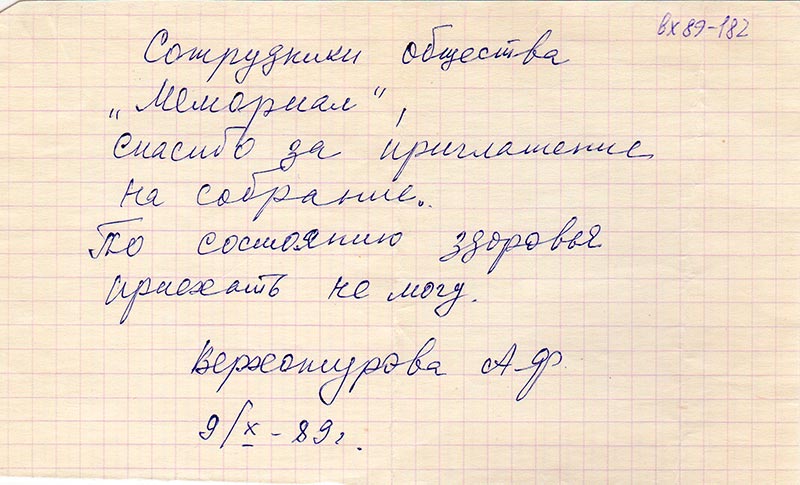 вх 89-182
Сотрудники общества
„Мемориал“,
спасибо за приглашение
на собрание.
По состоянию здоровья
приехать не могу.
Верхотурова А.Ф.
9/X-89г.